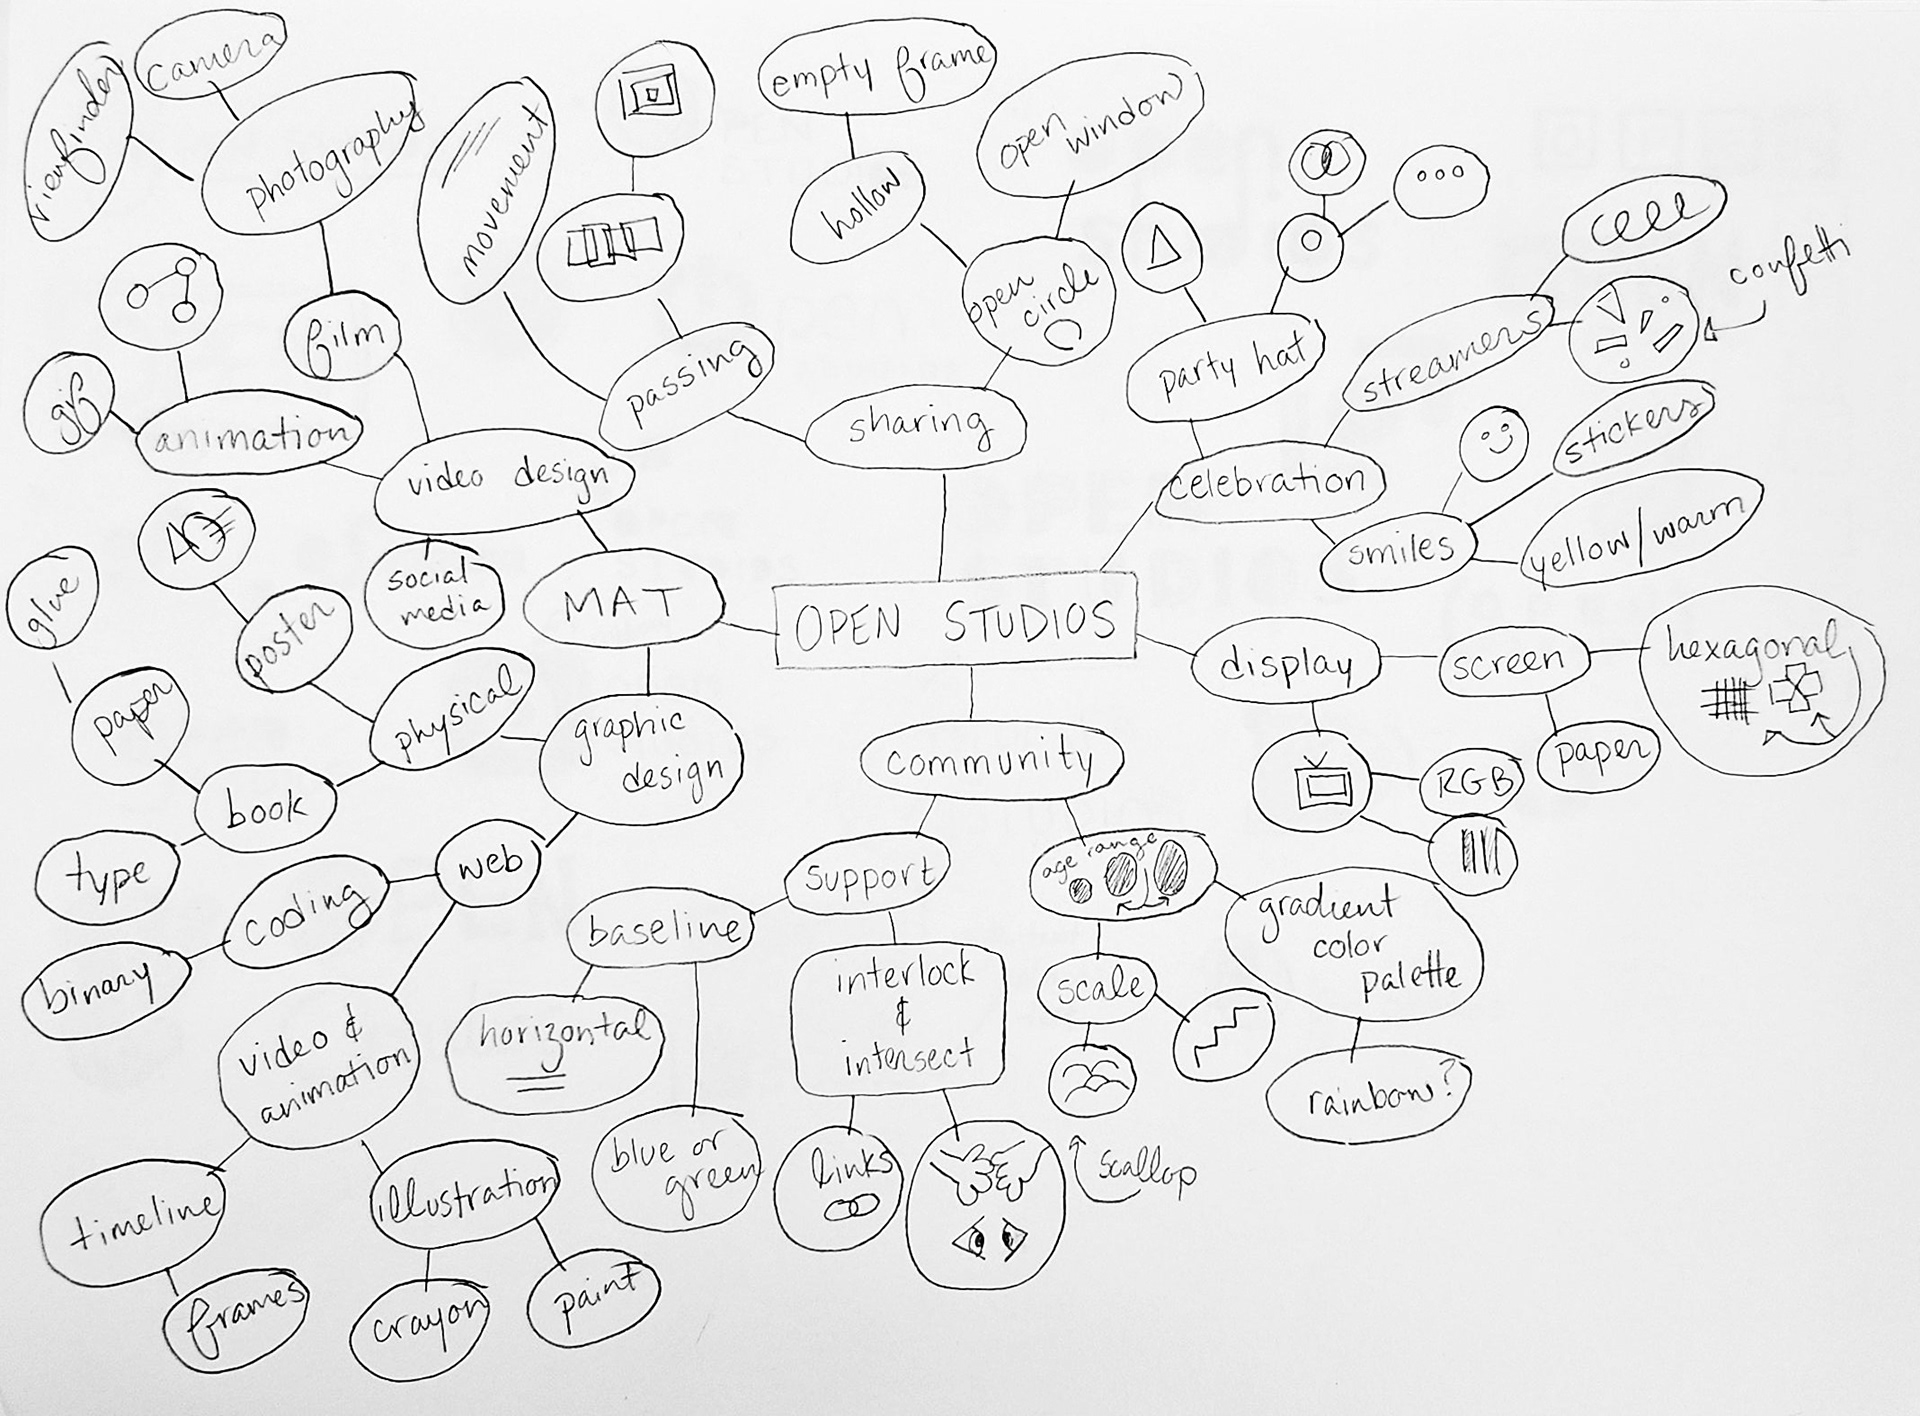 camera
viewfinder
photography
movement
empty frame
open
window
hollow
open
circle
film
gif
animation
passing
sharing
party hat
streamers
confetti
stickers
celebration
smiles
yellow/warm
video design
social
media
MAT
OPEN STUDIOS
glue
poster
paper
physical
graphic
design
book
type
web
coding
binary
video &
animation
timeline
frames
illustration
crayon
paint
community
support
baseline
horizontal
blue or
green
interlock
&
intersect
links
age range
scale
scallop
gradient
color
palette
rainbow?
display
screen
hexagonal
paper
RGB